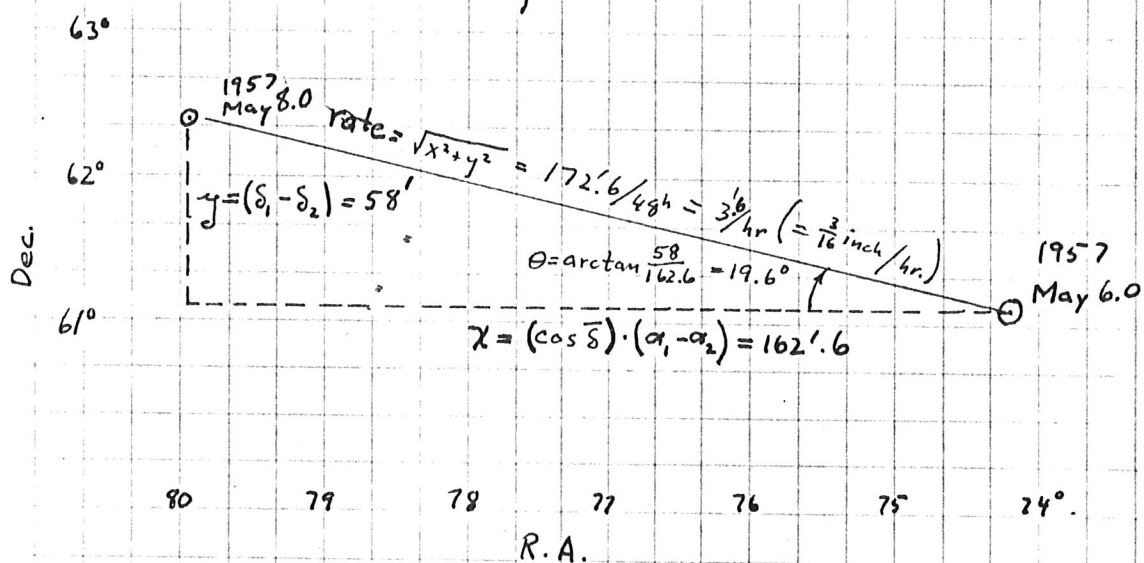 63°
1957
May 8.0
rate = √x²+y² = 172'.6/48h = 3'.6/hr (= 3/16 inch/hr.)
62°
y=(δ₁-δ₂) = 58'
θ=arctan 58/162.6 = 19.6°
1957
May 6.0
Dec.
61°
x = (cos δ̄)·(α₁-α₂) = 162'.6
80 79 78 77 76 75 74°.
R.A.